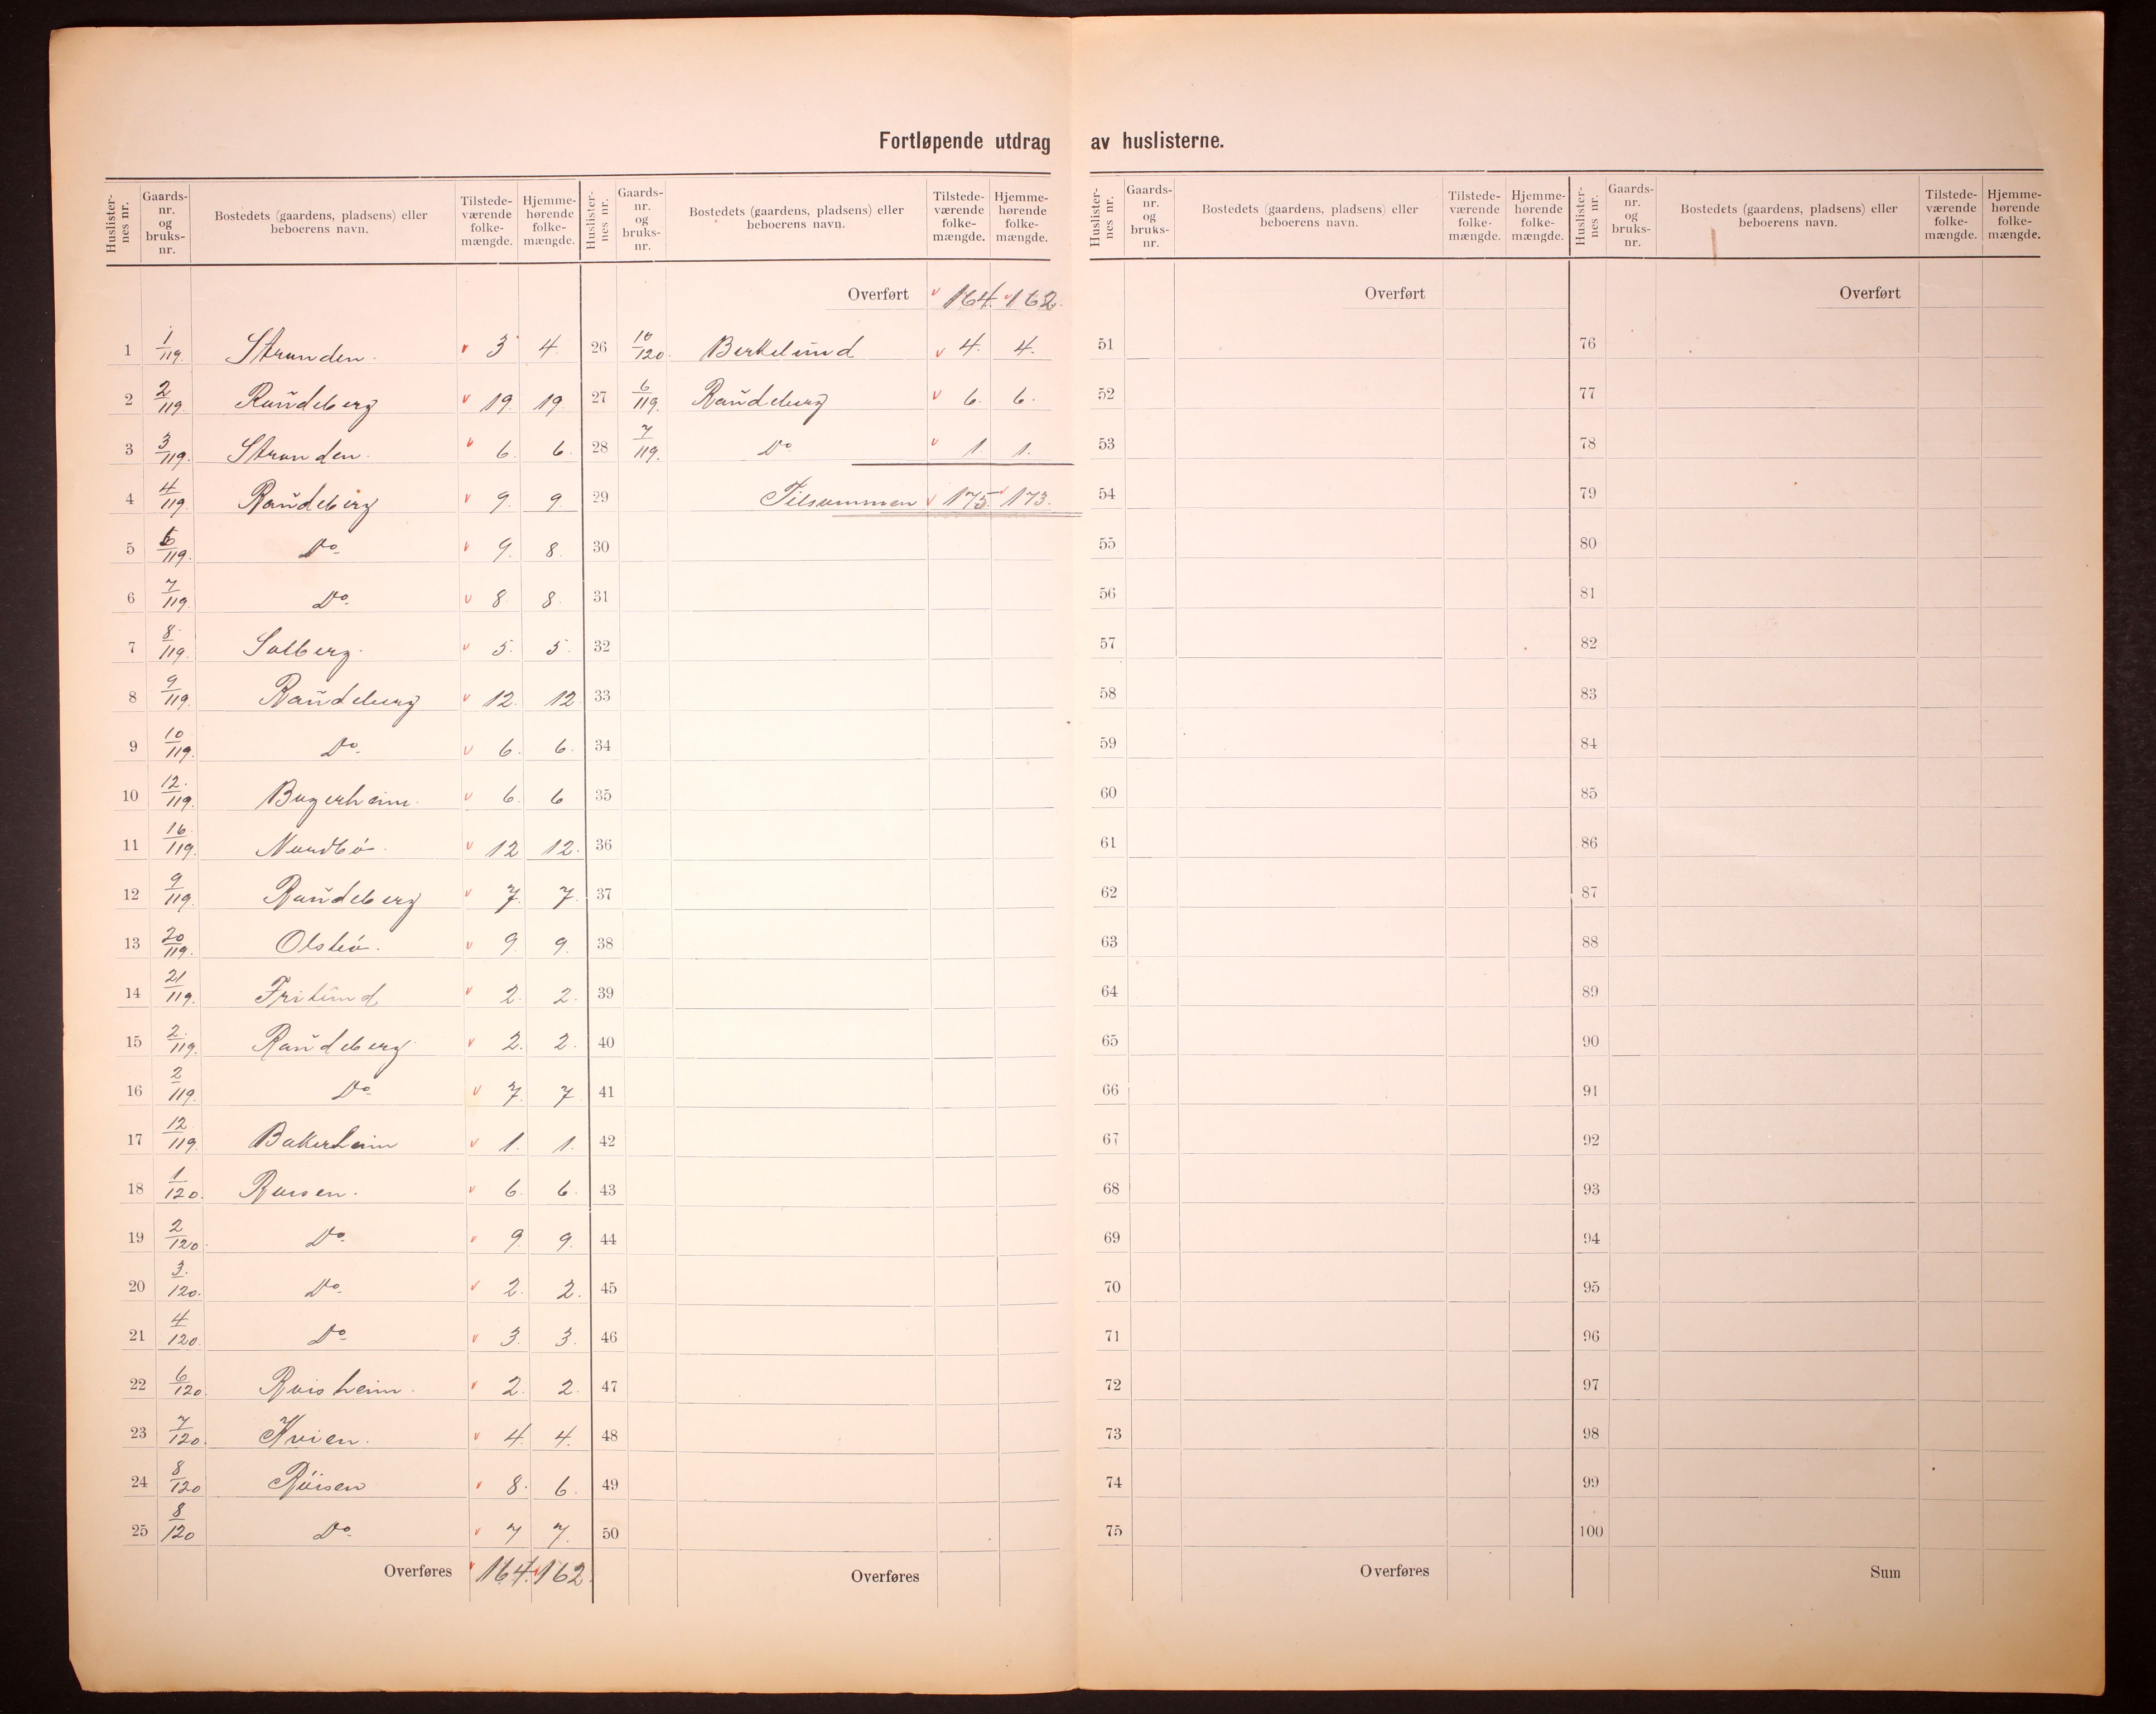 Fortløpende utdrag av huslisterne.
Huslister-nes nr. Gaards-nr. og bruks-nr. Bostedets (gaardens, pladsens) eller beboerens navn. Tilstede-værende folke-mængde. Hjemme-hørende folke-mængde.
1 1/119. Stranden. v 3 4
2 2/119. Raudeberg v 19. 19
3 3/119. Stranden. v 6. 6.
4 4/119 Raudeberg v 9. 9.
5 6/119. Do v 9. 8.
6 7/119. Do. v 8 8.
7 8/119. Solberg. v 5. 5.
8 9/119. Raudeberg v 12. 12
9 10/119. Do. v 6. 6.
10 12./119. v 6. 6
11 16/119. Nordbö. v 12 12.
12 9/119. Raudeberg v 7. 7.
13 20/119. Olsbö. v 9. 9.
14 21/119. Frilund v 2. 2.
15 2/119. Raudeberg v 2. 2.
16 2/119. Do. v 7. 7
17 12/119. Bakerheim v 1. 1.
18 1/120. v 6. 6.
19 2/120. Do. v 9. 9.
20 3./120. Do. v 2. 2.
21 4/120. Do v 3. 3.
22 6/120. v 2. 2.
23 7/120. Hvien. v 4. 4.
24 8/120 Röisen v 8. 6.
25 8/120 Do. v 7 7.
Overføres v 164. v 162.
Huslister-nes nr. Gaards-nr. og bruks-nr. Bostedets (gaardens, pladsens) eller beboerens navn. Tilstede-værende folke-mængde. Hjemme-hørende folke-mængde.
Overført v 164. v 162.
26 10/120. Birkelund v 4. 4.
27 6/119. Raudeberg v 6. 6.
28 7/119. Do. v 1. 1.
29 Tilsammen v 175. v 173.
30
31
32
33
34
35
36
37
38
39
40
41
42
43
44
45
46
47
48
49
50
Overføres
Huslister-nes nr. Gaards-nr. og bruks-nr. Bostedets (gaardens, pladsens) eller beboerens navn. Tilstede-værende folke-mængde. Hjemme-hørende folke-mængde.
Overført
51
52
53
54
55
56
57
58
59
60
61
62
63
64
65
66
67
68
69
70
71
72
73
74
75
Overføres
Huslister-nes nr. Gaards-nr. og bruks-nr. Bostedets (gaardens, pladsens) eller beboerens navn. Tilstede-værende folke-mængde. Hjemme-hørende folke-mængde.
Overført
76
77
78
79
80
81
82
83
84
85
86
87
88
89
90
91
92
93
94
95
96
97
98
99
100
Sum